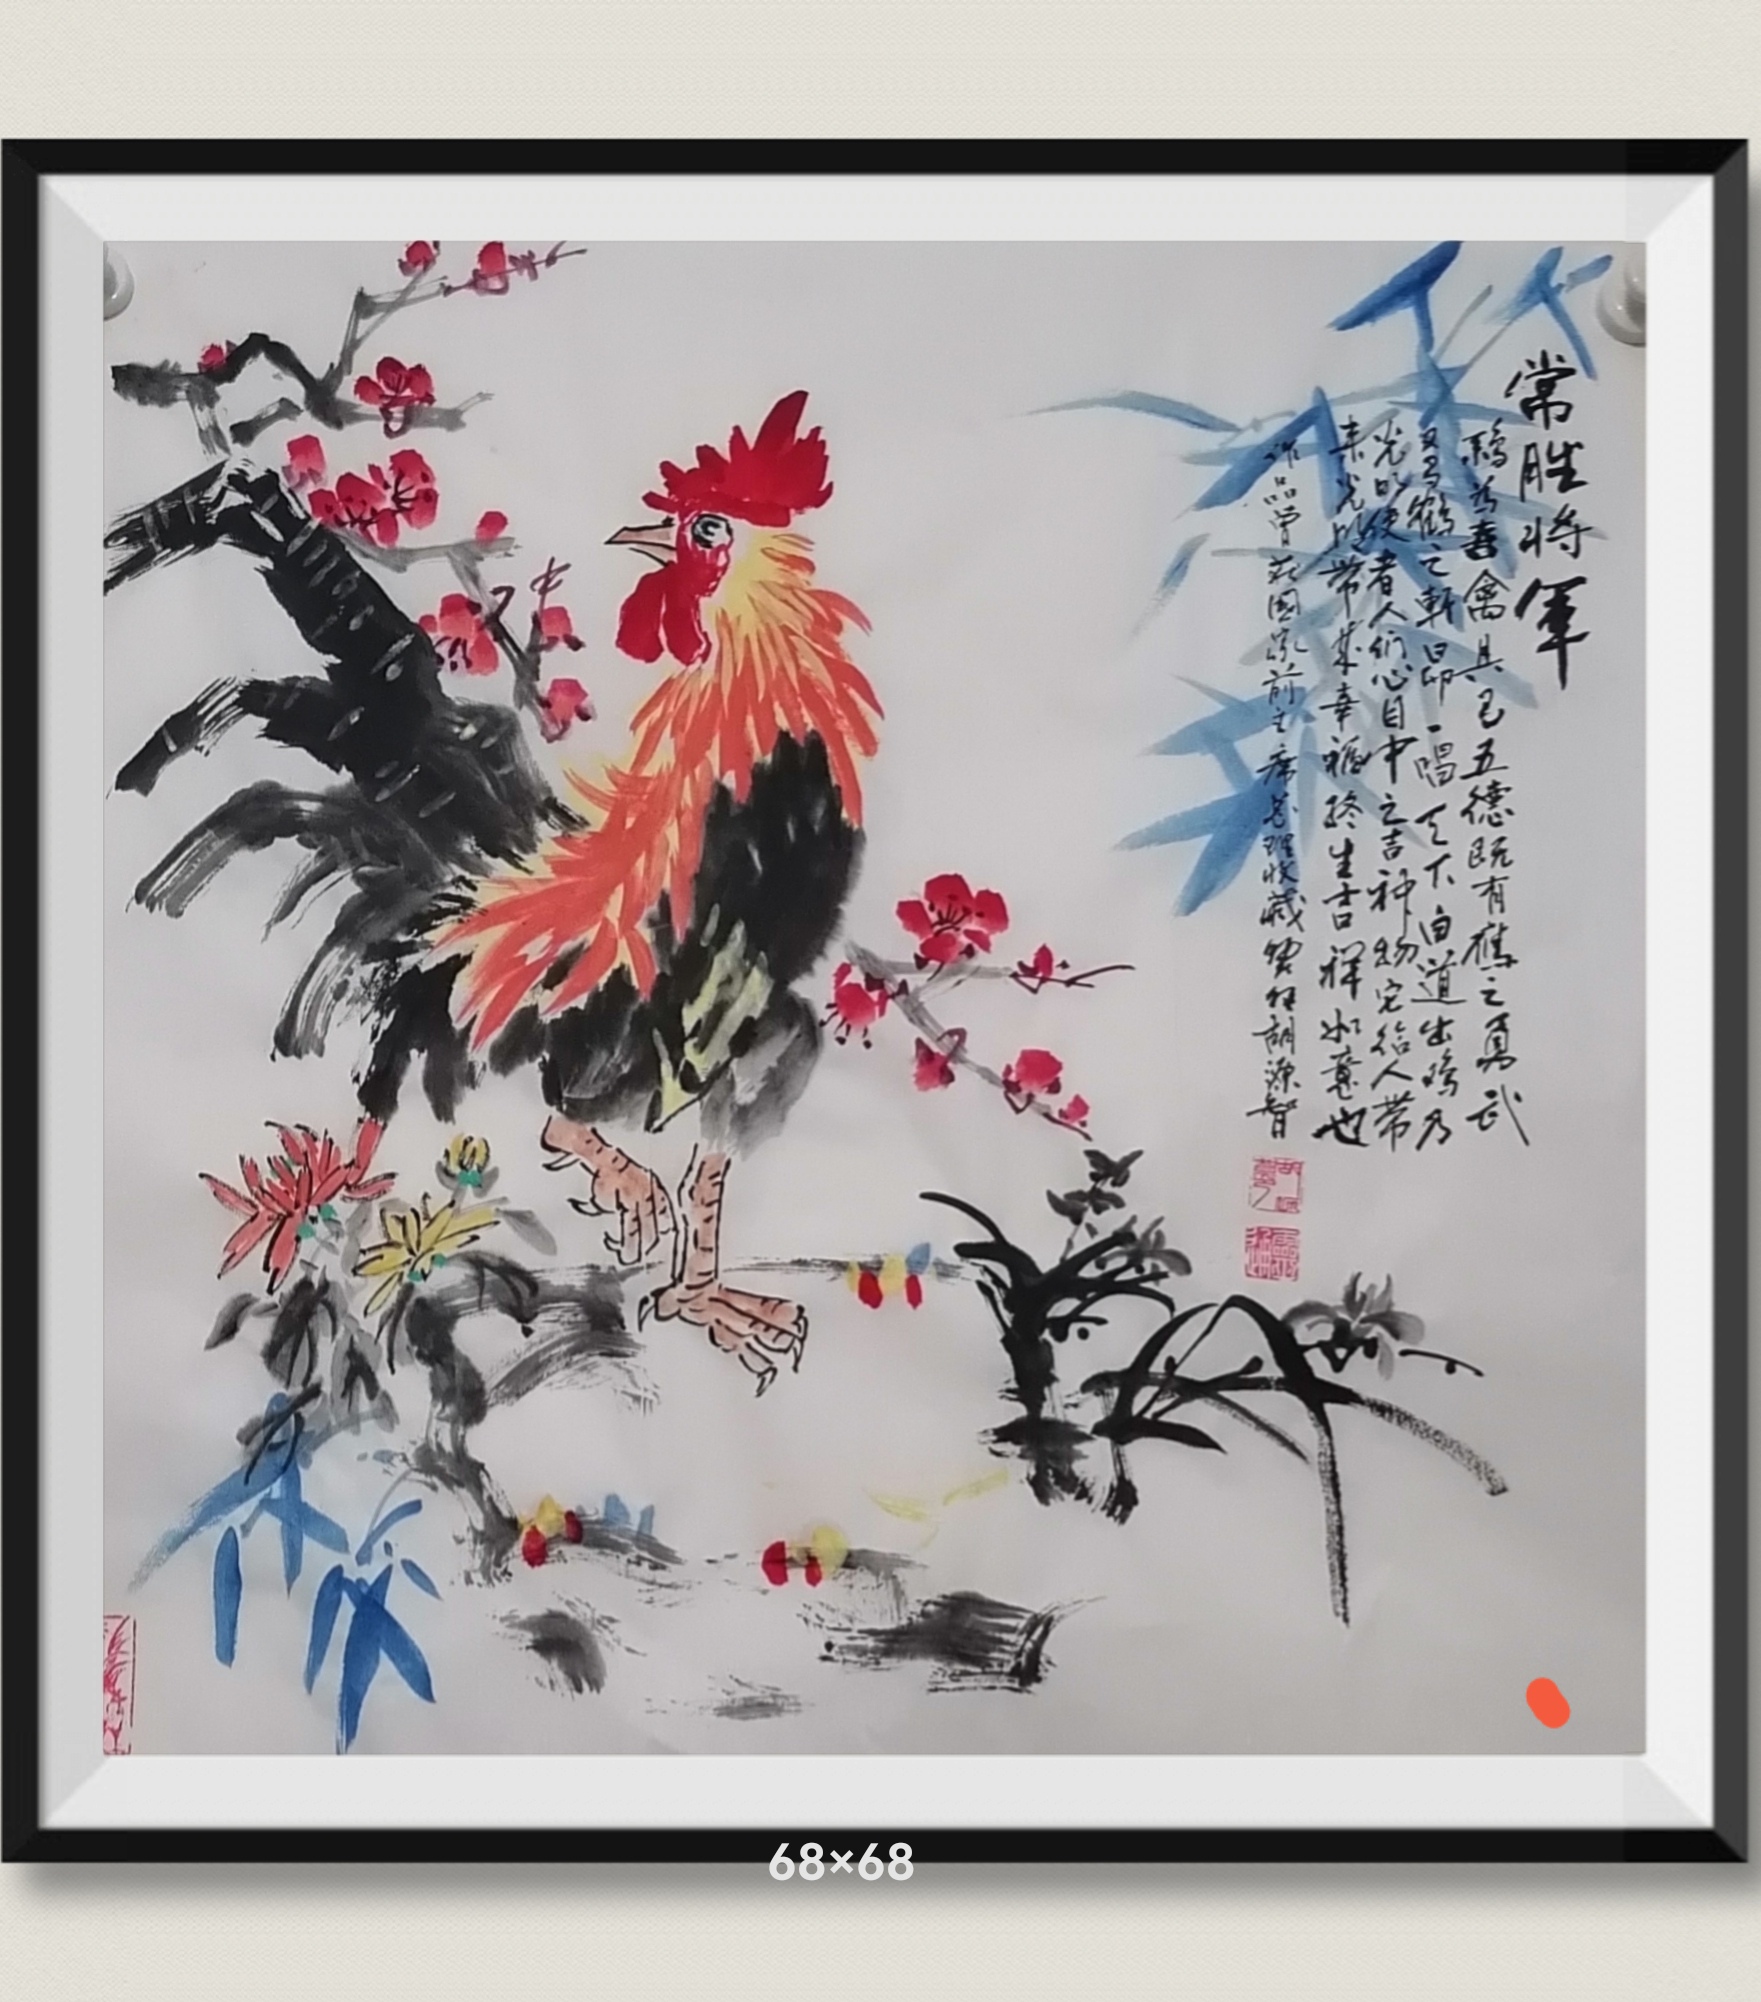 常胜将军
鸡为喜禽具已五德既有鹰之勇武
又有鹤之轩昂一唱天下白道出鸡乃
光明使者人们心目中之吉神物它给人带
来光明带来幸福终生吉祥如意也
作品曾获国家前主席 收藏 胡源智
68×68